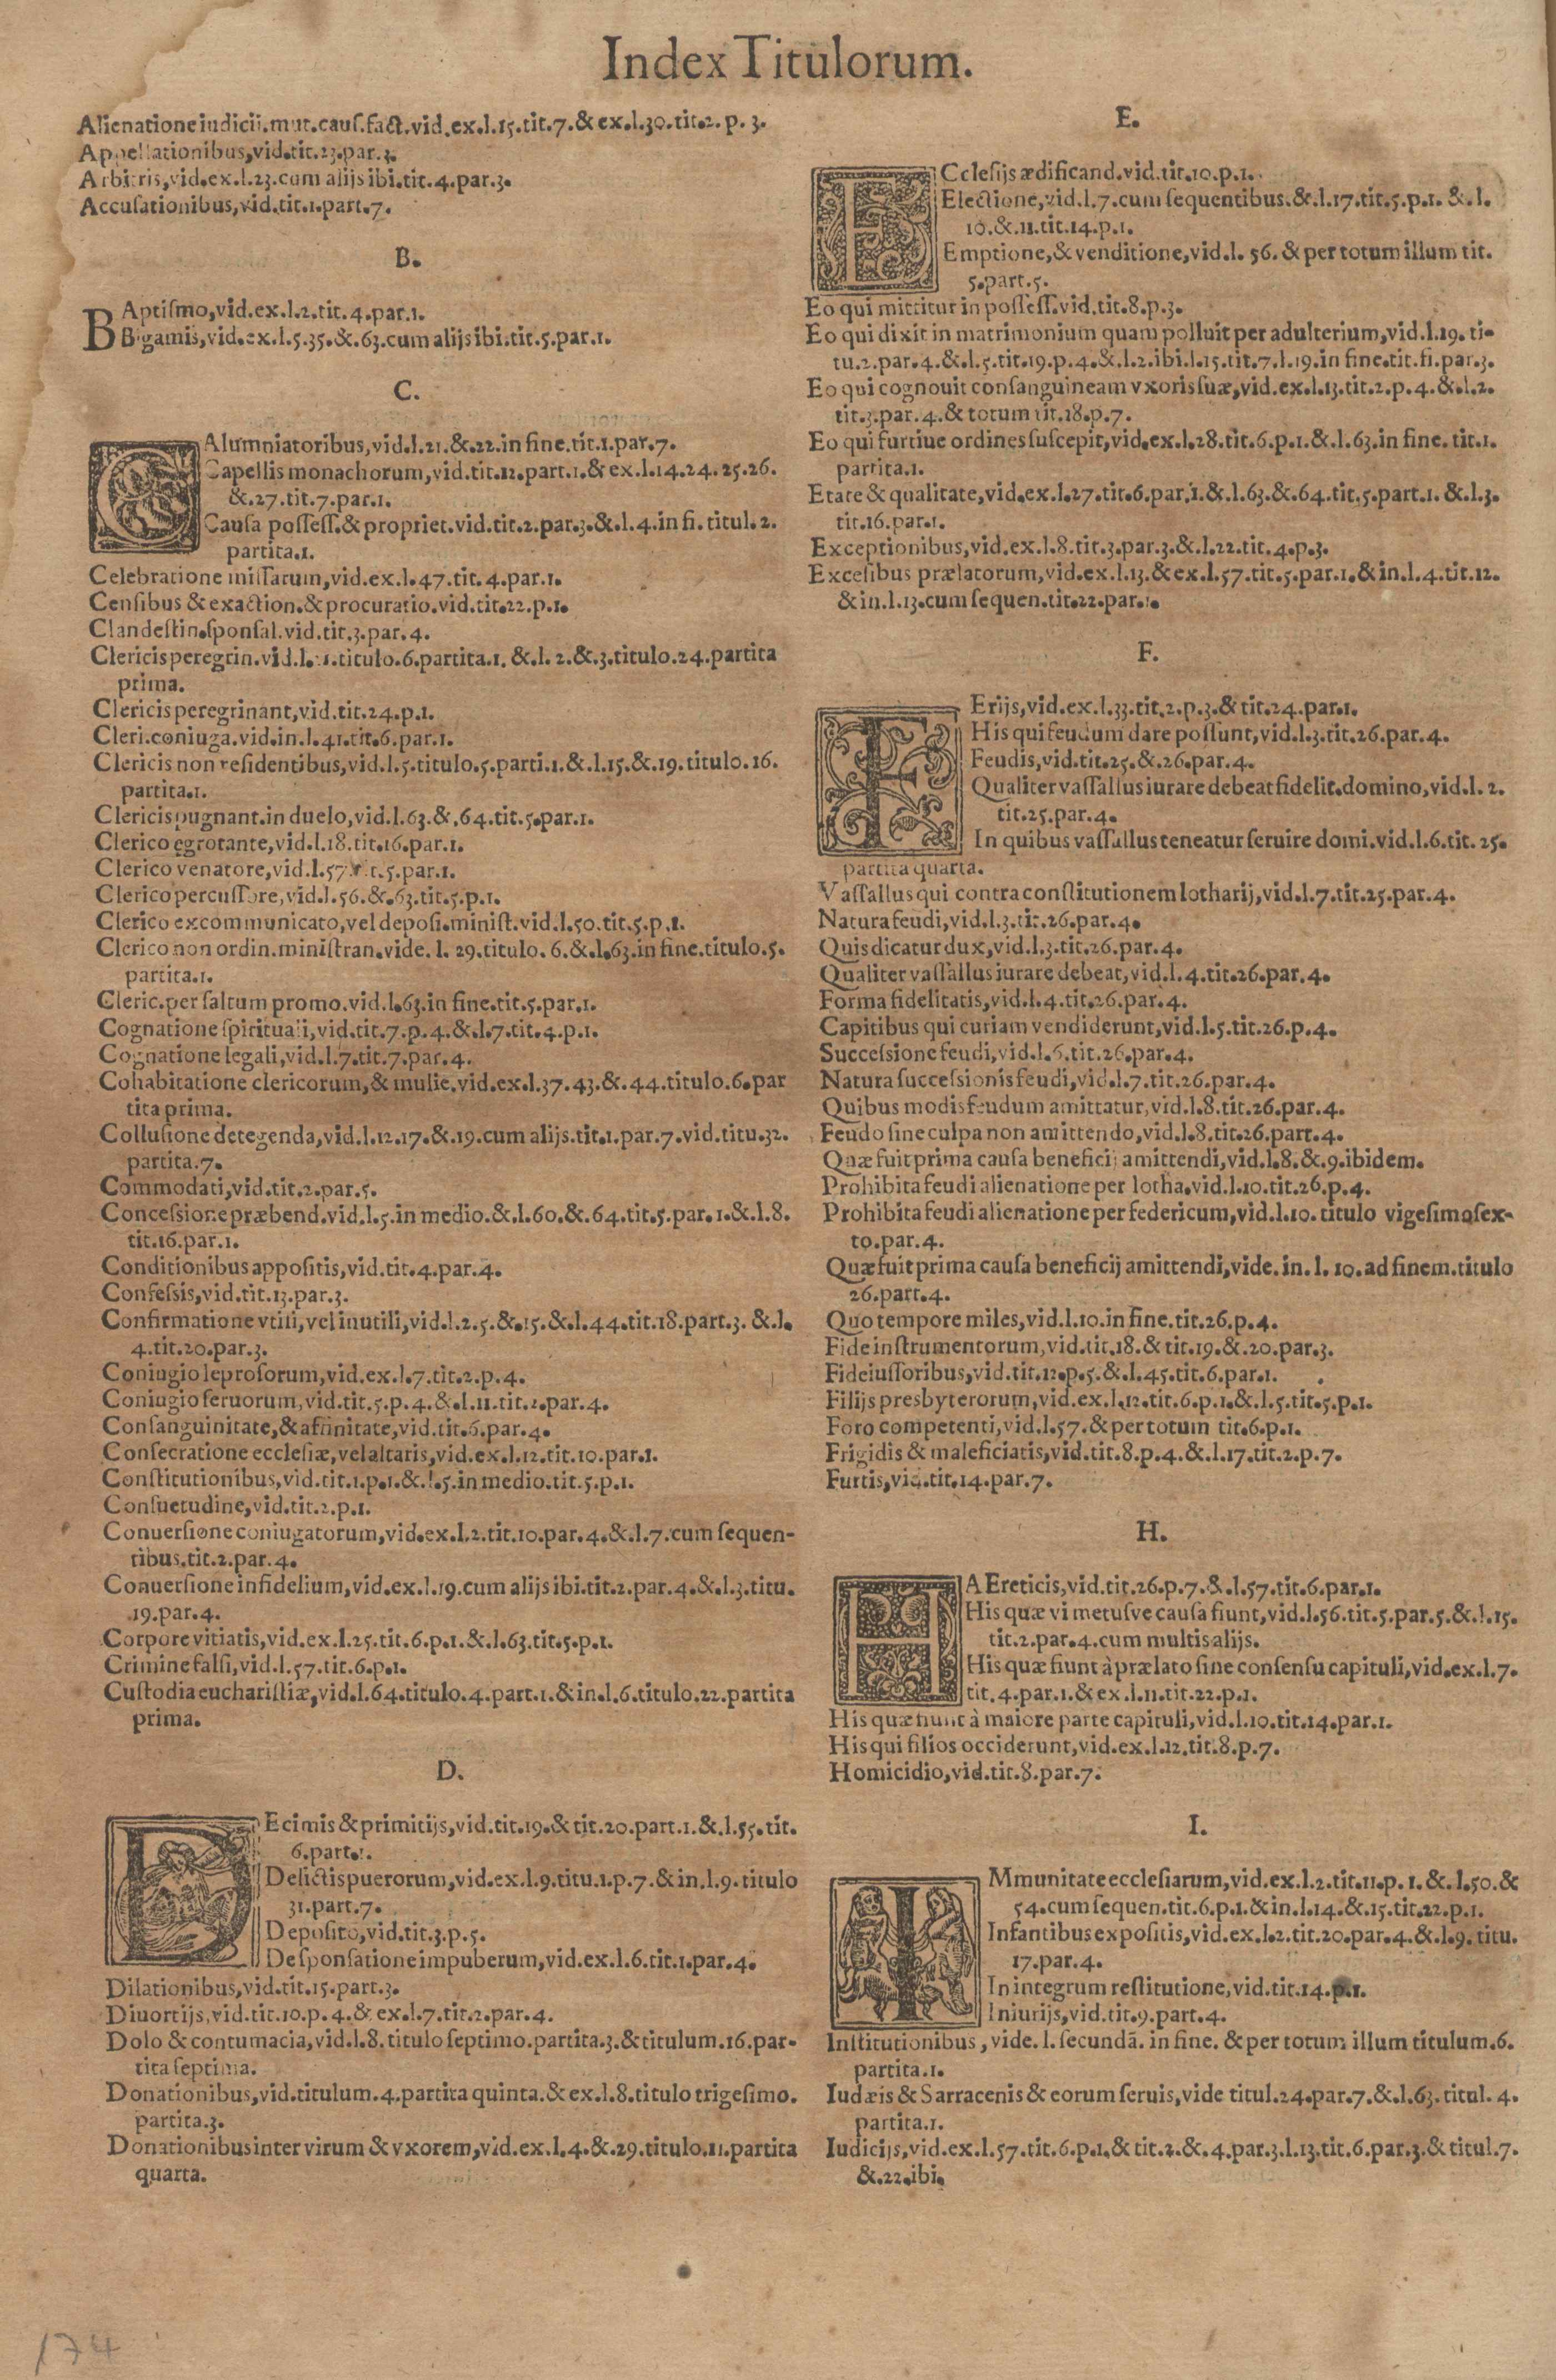 Index Titulorum.
Alienatione iudicii.mut.cauſ.fact.vid.ex.l.15.tit.7.& ex.l.30.tit.2.p.3.
Appellationibus,vid.tit.23.par.3.
Arbitris,vid.ex.l.23.cum alijs ibi.tit.4.par.3.
Accuſationibus,vid.tit.1.part.7.
B.
BAptiſmo,vid.ex.l.2.tit.4.par.1.
Bigamis,vid.ex.l.5.35.&.63.cum alijs ibi.tit.5.par.1.
C.
CAlumniatoribus,vid.l.21.&.22.in fine.tit.1.par.7.
Capellis monachorum,vid.tit.12.part.1.& ex.l.14.24.25.26.
&.27.tit.7.par.1.
Cauſa poſſeſſ.& propriet.vid.tit.2.par.3.&.l.4.in fi.titul.2.
partita.1.
Celebratione miſſarum,vid.ex.l.47.tit.4.par.1.
Cenſibus & exaction.& procuratio.vid.tit.22.p.1.
Clandeſtin.ſponſal.vid.tit.3.par.4.
Clericis peregrin.vid.l. 1.titulo.6.partita.1.&.l.2.&.3.titulo.24.partita
prima.
Clericis peregrinant,vid.tit.24.p.1.
Cleri.coniuga.vid.in.l.41.tit.6.par.1.
Clericis non reſidentibus,vid.l.5.titulo.5.parti.1.&.l.15.&.19.titulo.16.
partita.1.
Clericis pugnant.in duelo,vid.l.63.&.64.tit.5.par.1.
Clerico egrotante,vid.l.18.tit.16.par.1.
Clerico venatore,vid.l.57.tit.5.par.1.
Clerico percuſſore,vid.l.56.&.63.tit.5.p.1.
Clerico excommunicato,vel depoſi.miniſt.vid.l.50.tit.5.p.1.
Clerico non ordin.miniſtran.vide.l.29.titulo.6.&.l.63.in fine.titulo.5.
partita.1.
Cleric.per ſaltum promo.vid.l.63.in fine.tit.5.par.1.
Cognatione ſpirituali,vid.tit.7.p.4.&.l.7.tit.4.p.1.
Cognatione legali,vid.l.7.tit.7.par.4.
Cohabitatione clericorum,& mulie.vid.ex.l.37.43.&.44.titulo.6.par
tita prima.
Colluſione detegenda,vid.l.12.17.&.19.cum alijs.tit.1.par.7.vid.titu.32.
partita.7.
Commodati,vid.tit.2.par.5.
Conceſſione præbend.vid.l.5.in medio.&.l.60.&.64.tit.5.par.1.&.l.8.
tit.16.par.1.
Conditionibus appoſitis,vid.tit.4.par.4.
Confeſsis,vid.tit.13.par.3.
Confirmatione vtili,vel inutili,vid.l.2.5.&.15.&.l.44.tit.18.part.3.&.l.
4.tit.20.par.3.
Coniugio leproſorum,vid.ex.l.7.tit.2.p.4.
Coniugio ſeruorum,vid.tit.5.p.4.&.l.11.tit.2.par.4.
Conſanguinitate,& affinitate,vid.tit.6.par.4.
Conſecratione eccleſiæ,vel altaris,vid.ex.l.12.tit.10.par.1.
Conſtitutionibus,vid.tit.1.p.1.&.l.5.in medio.tit.5.p.1.
Conſuetudine,vid.tit.2.p.1.
Conuerſione coniugatorum,vid.ex.l.2.tit.10.par.4.&.l.7.cum ſequen-
tibus.tit.2.par.4.
Conuerſione infidelium,vid.ex.l.19.cum alijs ibi.tit.2.par.4.&.l.3.titu.
19.par.4.
Corpore vitiatis,vid.ex.l.25.tit.6.p.1.&.l.63.tit.5.p.1.
Crimine falſi,vid.l.57.tit.6.p.1.
Cuſtodia euchariſtiæ,vid.l.64.titulo.4.part.1.& in.l.6.titulo.22.partita
prima.
D.
DEcimis & primitijs,vid.tit.19.& tit.20.part.1.&.l.55.tit.
6.part.1.
Delictis puerorum,vid.ex.l.9.titu.1.p.7.& in.l.9.titulo
31.part.7.
Depoſito,vid.tit.3.p.5.
Deſponſatione impuberum,vid.ex.l.6.tit.1.par.4.
Dilationibus,vid.tit.15.part.3.
Diuortijs,vid.tit.10.p.4.& ex.l.7.tit.2.par.4.
Dolo & contumacia,vid.l.8.titulo ſeptimo.partita.3.& titulum.16.par-
tita ſeptima.
Donationibus,vid.titulum.4.partita quinta.& ex.l.8.titulo trigeſimo.
partita.3.
Donationibus inter virum & vxorem,vid.ex.l.4.&.29.titulo.11.partita
quarta.
E.
ECcleſijs ædificand.vid.tit.10.p.1.
Electione,vid.l.7.cum ſequentibus.&.l.17.tit.5.p.1.&.l.
10.&.11.tit.14.p.1.
Emptione,& venditione,vid.l.56.& per totum illum tit.
5.part.5.
Eo qui mittitur in poſſeſſ.vid.tit.8.p.3.
Eo qui dixit in matrimonium quam polluit per adulterium,vid.l.19.ti-
tu.2.par.4.&.l.5.tit.19.p.4.&.l.2.ibi.l.15.tit.7.l.19.in fine.tit.fi.par.3.
Eo qui cognouit conſanguineam vxoris ſuæ,vid.ex.l.13.tit.2.p.4.&.l.2.
tit.3.par.4.& totum tit.18.p.7.
Eo qui furtiue ordines ſuſcepit,vid.ex.l.28.tit.6.p.1.&.l.63.in fine.tit.1.
partita.1.
Etate & qualitate,vid.ex.l.27.tit.6.par.1.&.l.63.&.64.tit.5.part.1.&.l.3.
tit.16.par.1.
Exceptionibus,vid.ex.l.8.tit.3.par.3.&.l.22.tit.4.p.3.
Exceſibus prælatorum,vid.ex.l.13.& ex.l.57.tit.5.par.1.& in.l.4.tit.12.
& in.l.13.cum ſequen.tit.22.par.1.
F.
FErijs,vid.ex.l.33.tit.2.p.3.& tit.24.par.1.
His qui feudum dare poſſunt,vid.l.3.tit.26.par.4.
Feudis,vid.tit.25.&.26.par.4.
Qualiter vaſſallus iurare debeat fidelit.domino,vid.l.2.
tit.25.par.4.
In quibus vaſſallus teneatur ſeruire domi.vid.l.6.tit.25.
partita quarta.
Vaſſallus qui contra conſtitutionem lotharij,vid.l.7.tit.25.par.4.
Natura feudi,vid.l.3.tit.26.par.4.
Quis dicatur dux,vid.l.3.tit.26.par.4.
Qualiter vaſſallus iurare debeat,vid.l.4.tit.26.par.4.
Forma fidelitatis,vid.l.4.tit.26.par.4.
Capitibus qui curiam vendiderunt,vid.l.5.tit.26.p.4.
Succeſsione feudi,vid.l.6.tit.26.par.4.
Natura ſucceſsionis feudi,vid.l.7.tit.26.par.4.
Quibus modis feudum amittatur,vid.l.8.tit.26.par.4.
Feudo ſine culpa non amittendo,vid.l.8.tit.26.part.4.
Quæ fuit prima cauſa beneficij amittendi,vid.l.8.&.9.ibidem.
Prohibita feudi alienatione per lotha.vid.l.10.tit.26.p.4.
Prohibita feudi alienatione per federicum,vid.l.10.titulo vigeſimoſex-
to.par.4.
Quæ fuit prima cauſa beneficij amittendi,vide.in.l.10.ad finem.titulo
26.part.4.
Quo tempore miles,vid.l.10.in fine.tit.26.p.4.
Fide inſtrumentorum,vid.tit.18.& tit.19.&.20.par.3.
Fideiuſſoribus,vid.tit.12.p.5.&.l.45.tit.6.par.1.
Filijs presbyterorum,vid.ex.l.12.tit.6.p.1.&.l.5.tit.5.p.1.
Foro competenti,vid.l.57.& per totum tit.6.p.1.
Frigidis & maleficiatis,vid.tit.8.p.4.&.l.17.tit.2.p.7.
Furtis,vid.tit.14.par.7.
H.
HAEreticis,vid.tit.26.p.7.&.l.57.tit.6.par.1.
His quæ vi metuſve cauſa fiunt,vid.l.56.tit.5.par.5.&.l.15.
tit.2.par.4.cum multis alijs.
His quæ fiunt à prælato ſine conſenſu capituli,vid.ex.l.7.
tit.4.par.1.& ex.l.11.tit.22.p.1.
His quæ fiunt à maiore parte capituli,vid.l.10.tit.14.par.1.
His qui filios occiderunt,vid.ex.l.12.tit.8.p.7.
Homicidio,vid.tit.8.par.7.
I.
IMmunitate eccleſiarum,vid.ex.l.2.tit.11.p.1.&.l.50.&
54.cum ſequen.tit.6.p.1.& in.l.14.&.15.tit.22.p.1.
Infantibus expoſitis,vid.ex.l.2.tit.20.par.4.&.l.9.titu.
17.par.4.
In integrum reſtitutione,vid.tit.14.p.1.
Iniurijs,vid.tit.9.part.4.
Inſtitutionibus,vide.l.ſecundã.in fine.& per totum illum titulum.6.
partita.1.
Iudæis & Sarracenis & eorum ſeruis,vide titul.24.par.7.&.l.63.titul.4.
partita.1.
Iudicijs,vid.ex.l.57.tit.6.p.1.& tit.2.&.4.par.3.l.13.tit.6.par.3.& titul.7.
&.22.ibi.
174